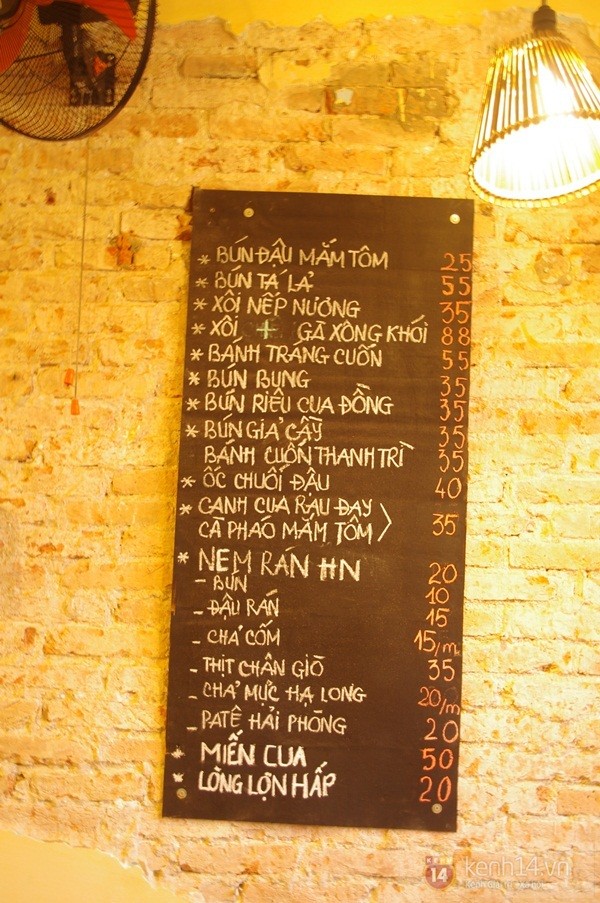 * BÚN ĐẬU MẮM TÔM 25
* BÚN TÁI LẢ 55
* XÔI NẾP NƯƠNG 35
* XÔI + GÀ XÔNG KHÓI 88
* BÁNH TRANG CUỐN 55
* BÚN BUNG 35
* BÚN RIÊU CUA ĐỒNG 35
* BÚN GIẢ CẦY 35
BÁNH CUỐN THANH TRÌ 35
* ỐC CHUỐI ĐẬU 40
* CANH CUA RAU ĐAY
CÀ PHÁO MẮM TÔM > 35
* NEM RÁN HN 20
- BÚN 10
- ĐẬU RÁN 15
- CHẢ CỐM 15/m
- THỊT CHÂN GIÒ 35
- CHẢ MỰC HẠ LONG 20/m
- PATÊ HẢI PHÒNG 20
* MIẾN CUA 50
* LÒNG LỢN HẤP 20
14 kenh14.vn